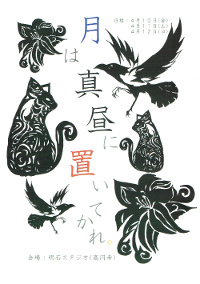 日程：4月10日(金)
4月11日(土)
4月12日(日)
月は真昼に置いてかれ。
会場：明石スタジオ(高円寺)